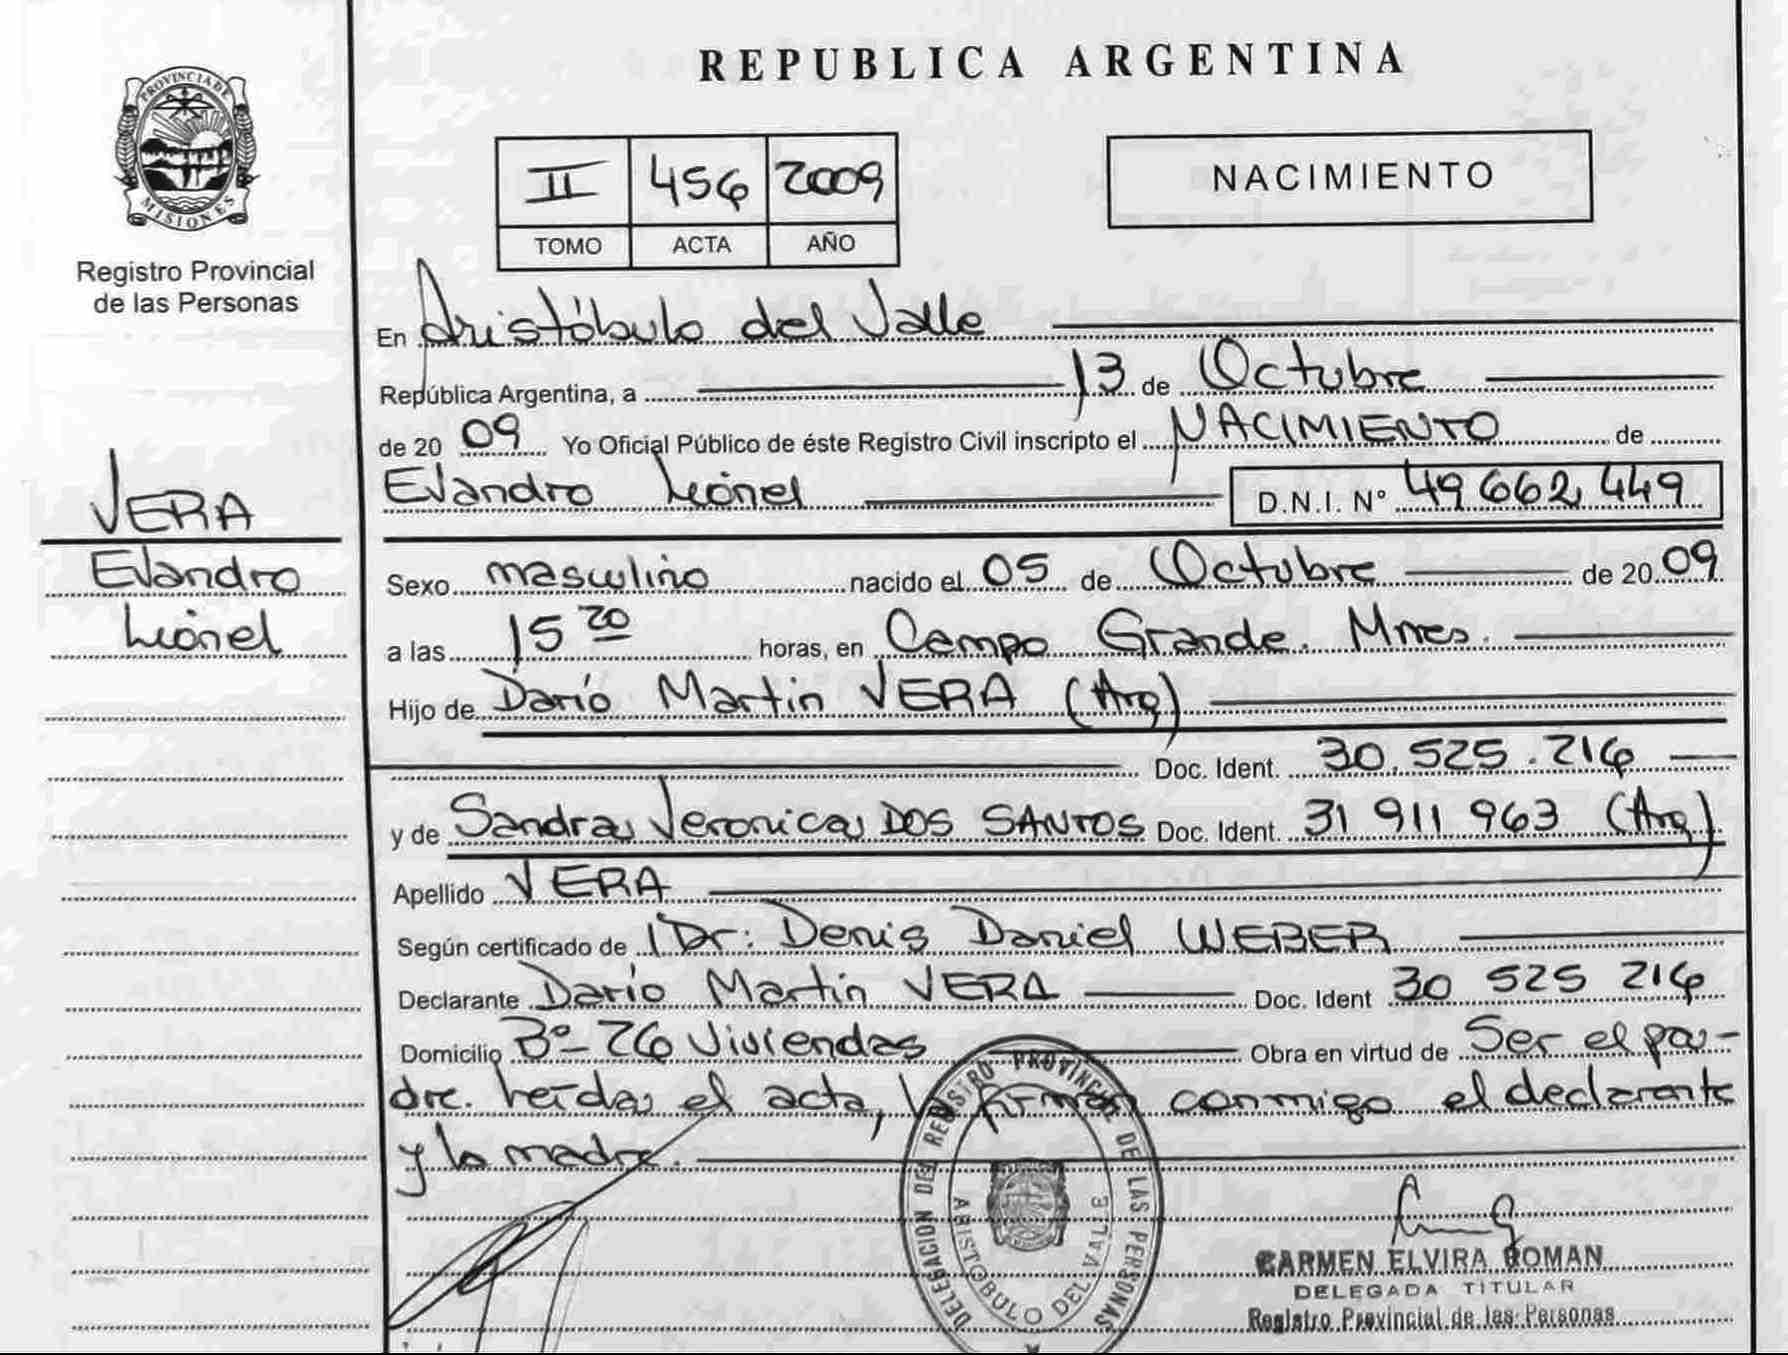 REPUBLICA ARGENTINA
PROVINCIA DE
MISIONES
Registro Provincial
de las Personas
II 456 2009
TOMO ACTA AÑO
NACIMIENTO
En Aristóbulo del Valle
República Argentina, a 13 de Octubre
de 20 09 Yo Oficial Público de éste Registro Civil inscripto el NACIMIENTO de
Evandro Leonel D.N.I. Nº 49 662 449
VERA
Evandro
Leonel
Sexo masculino nacido el 05 de Octubre de 20 09
a las 15 20 horas, en Campo Grande. Mnes.
Hijo de Darío Martin VERA (Arg)
Doc. Ident. 30.525.216
y de Sandra Veronica DOS SANTOS Doc. Ident. 31 911 963 (Arg)
Apellido VERA
Según certificado de Dr: Denis Daniel WEBER
Declarante Darío Martin VERA Doc. Ident 30 525 216
Domicilio Bº 26 Viviendas Obra en virtud de Ser el pa-
dre. Leída el acta, firman conmigo el declarante
y la madre.
DELEGACION DEL REGISTRO PROVINCIAL DE LAS PERSONAS
ARISTOBULO DEL VALLE
CARMEN ELVIRA ROMAN
DELEGADA TITULAR
Registro Provincial de las Personas